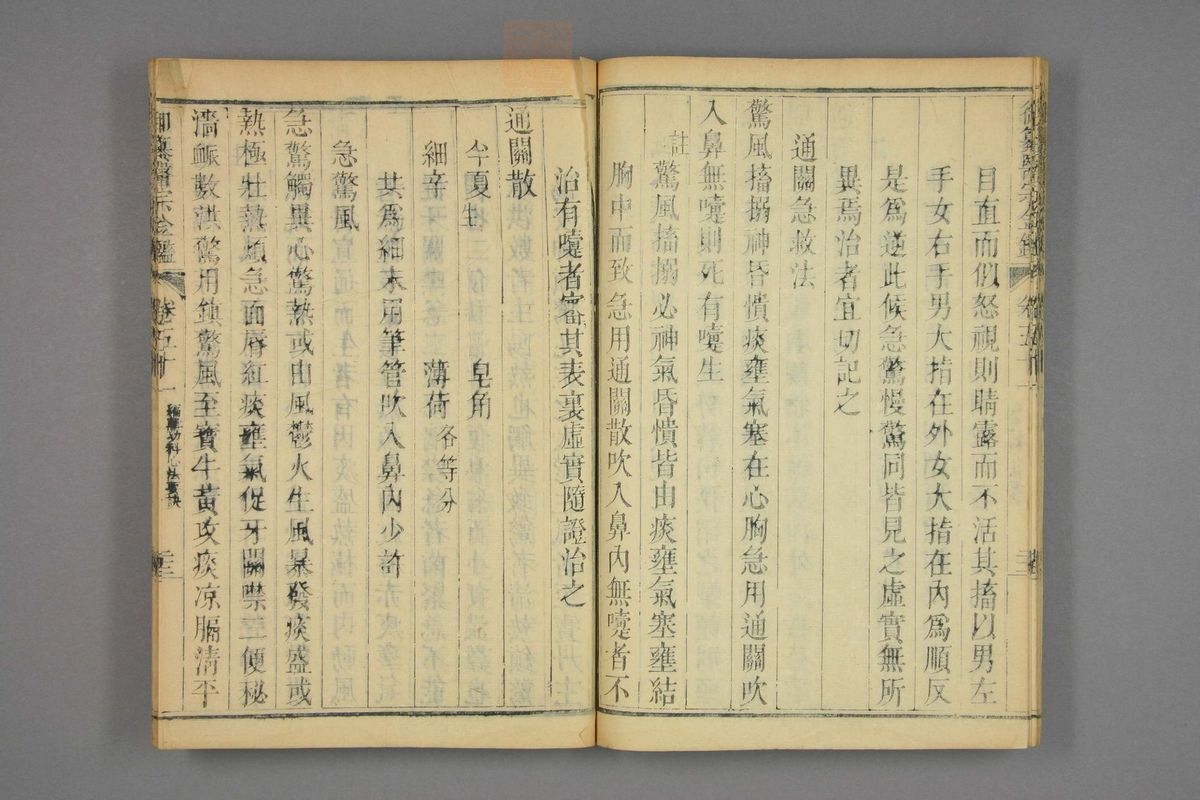 目直而似怒視則睛露而不活其搐以男左
手女右手男大指在外女大指在內為順反
是為逆此候急驚慢驚同皆見之虛實無所
異焉治者宜切記之
通關急救法
驚風搐搦神昏憒痰壅氣塞在心胸急用通關吹
入鼻無嚏則死有嚏生
註驚風搐搦必神氣昏憒皆由痰壅氣塞壅結
胸中而致急用通關散吹入鼻內無嚏者不
治有嚏者審其表裏虛實隨證治之
通關散
半夏生 皂角
細辛 薄荷各等分
共為細末用筆管吹入鼻內少許
急驚風
急驚觸異心驚熱或由風鬱火生風暴發痰盛或
熱極壯熱煩急面唇紅痰壅氣促牙關噤二便秘
濇脈數洪驚用鎮驚風至寶牛黃攻痰凉膈清平
御纂醫宗金鑑 卷五十一 編輯幼科心法要訣